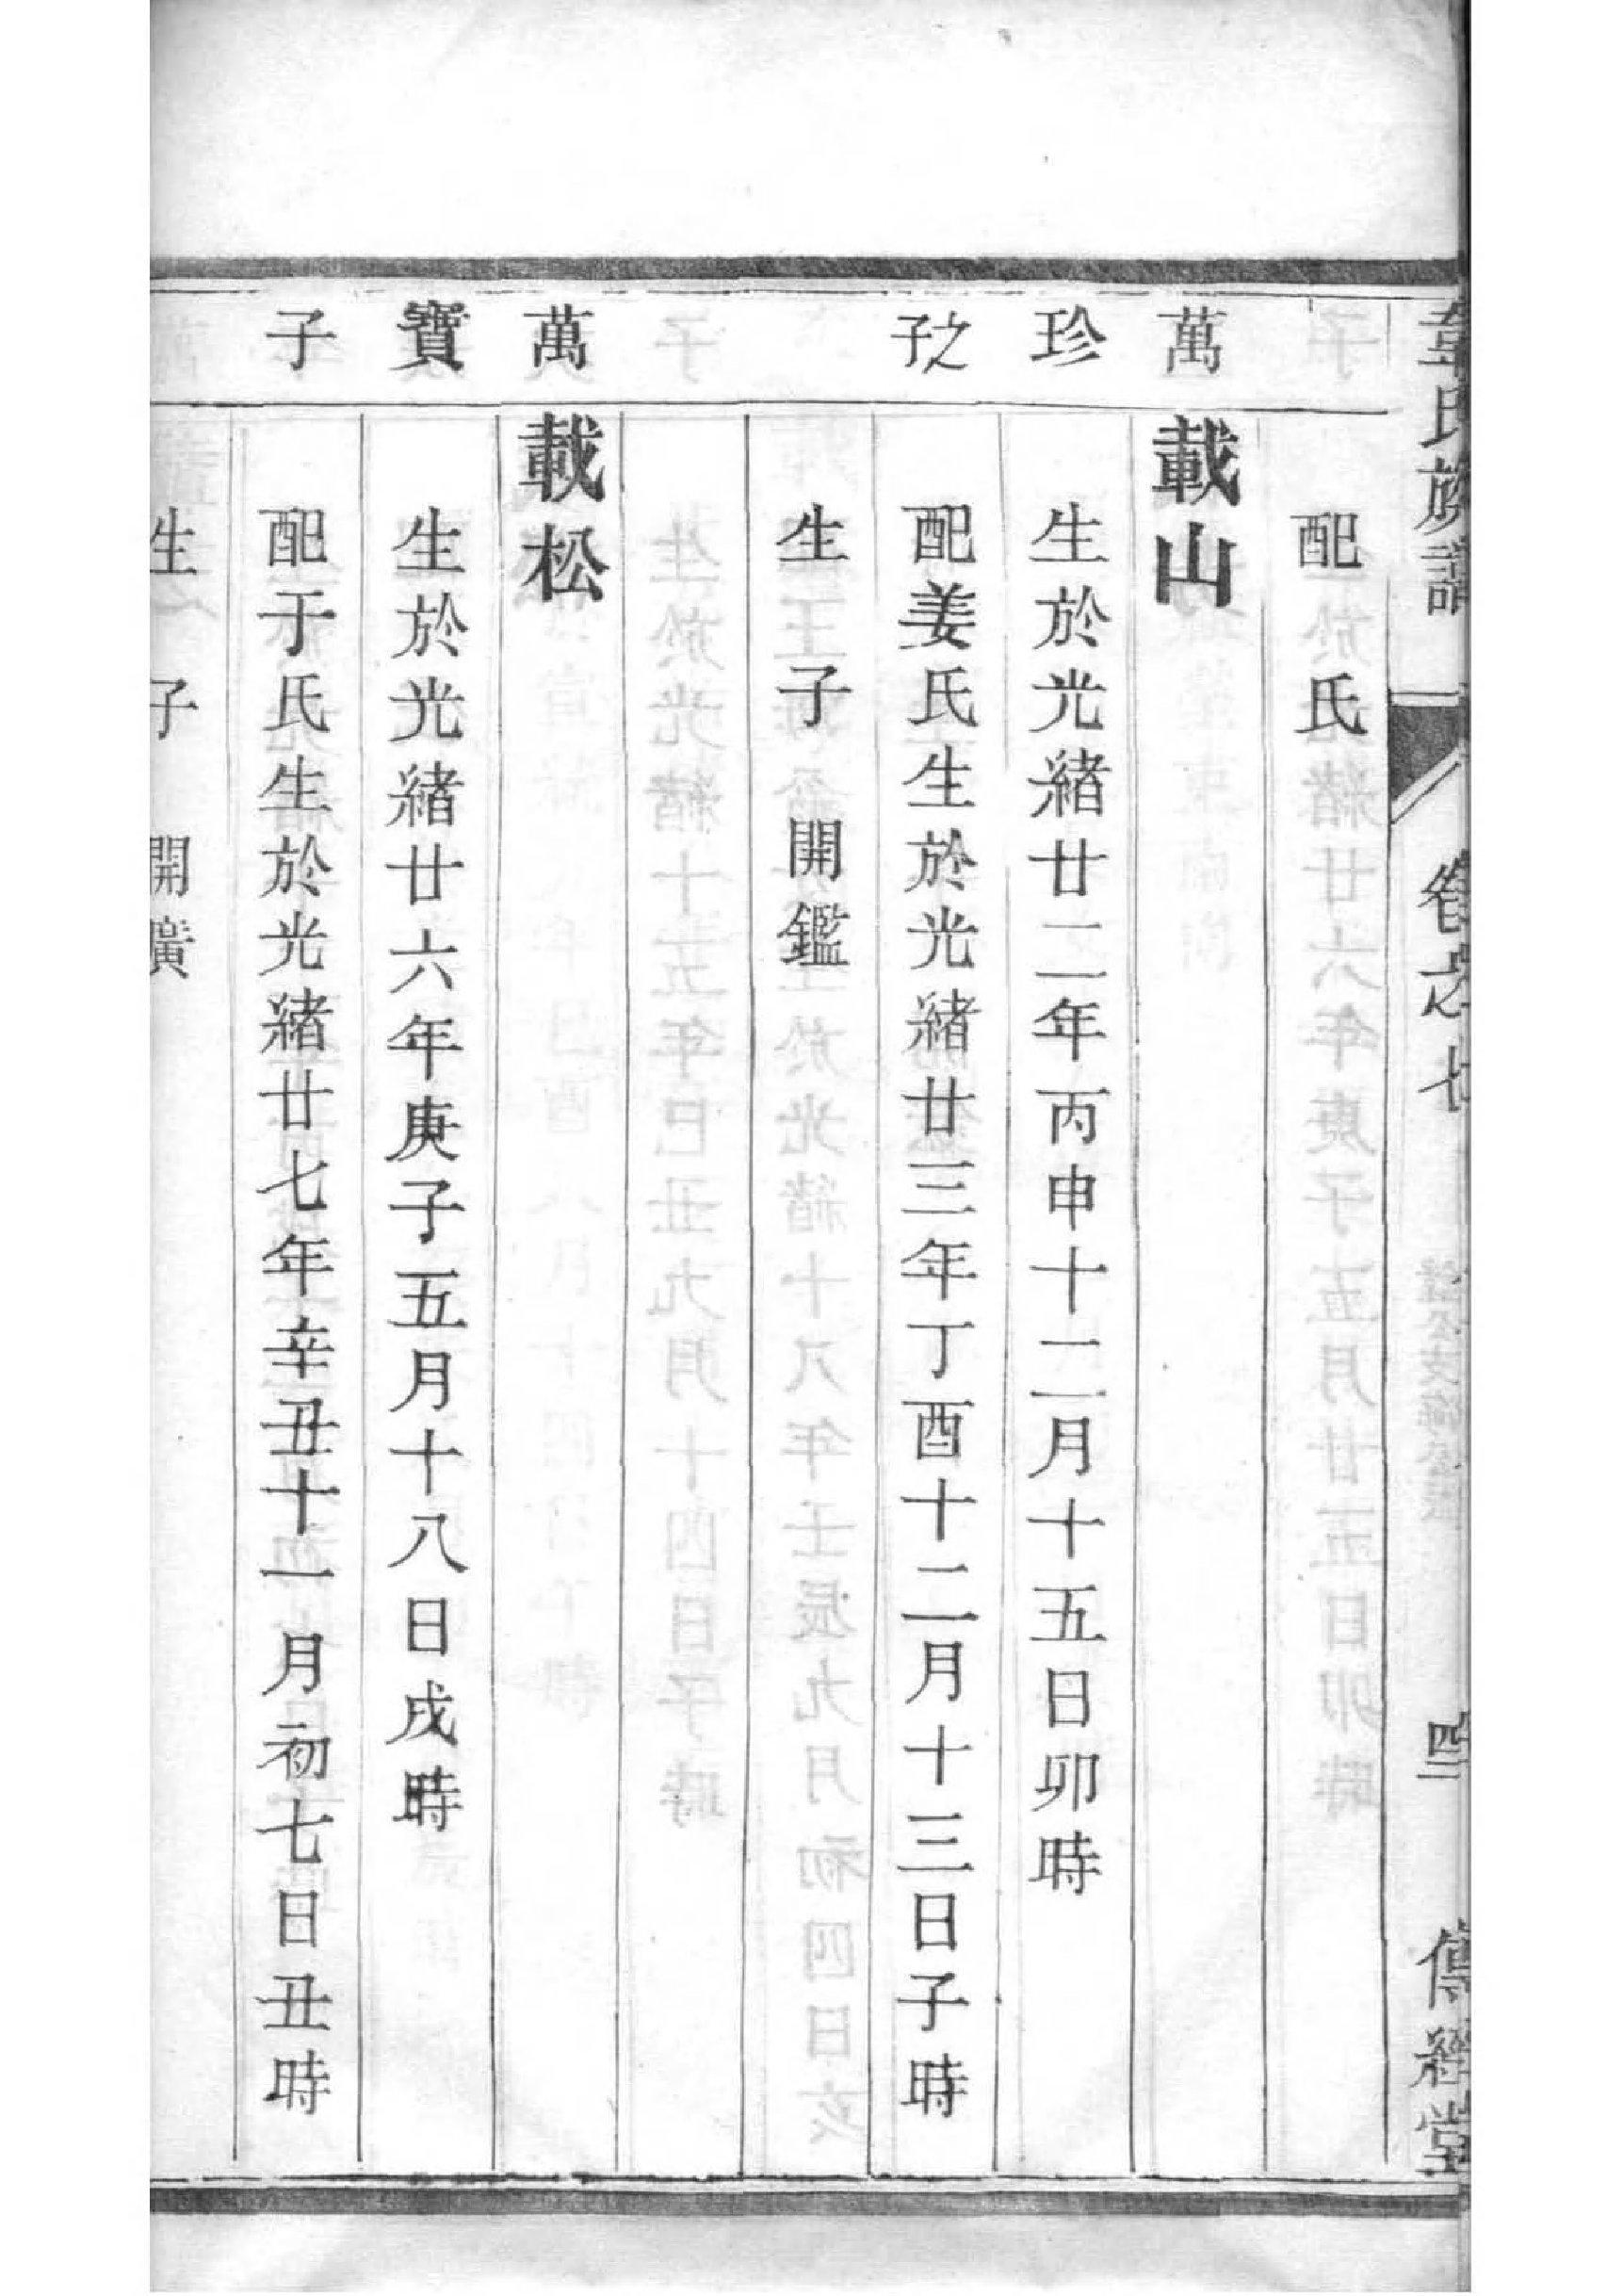 韋氏族譜 卷之七 四 傳經堂
配 氏
萬 載山
珍 生於光緒廿二年丙申十二月十五日卯時
之子 配姜氏生於光緒廿三年丁酉十二月十三日子時
生 子 開鑑
萬 載松
寶 生於光緒廿六年庚子五月十八日戌時
子 配于氏生於光緒廿七年辛丑十一月初七日丑時
生 子 開廣